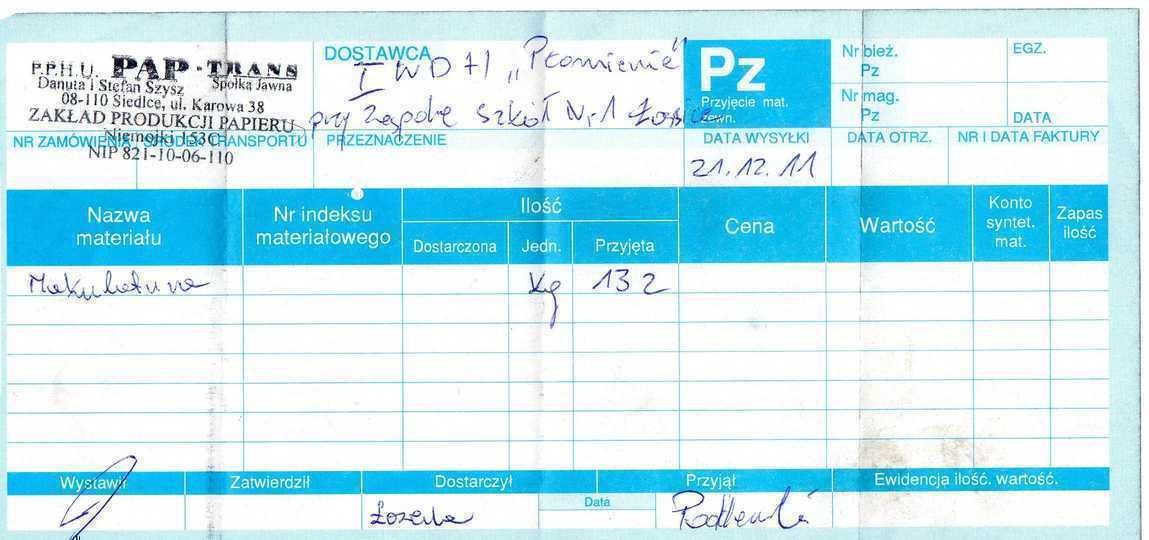 P.P.H.U. PAP-TRANS
Danuta i Stefan Szysz Spółka Jawna
08-110 Siedlce, ul. Karowa 38
ZAKŁAD PRODUKCJI PAPIERU
Niemojki 153C
NIP 821-10-06-110
NR ZAMÓWIENIA ŚRODEK TRANSPORTU
DOSTAWCA
I WDH „Płomienie"
przy Zespole Szkół Nr 1 Łosice
PRZEZNACZENIE
Pz
Przyjęcie mat.
zewn.
Nr bież.
Pz
EGZ.
Nr mag.
Pz
DATA
DATA WYSYŁKI
21.12.11
DATA OTRZ.
NR I DATA FAKTURY
Nazwa
materiału
Nr indeksu
materiałowego
Ilość
Dostarczona
Jedn.
Przyjęta
Cena
Wartość
Konto
syntet.
mat.
Zapas
ilość
Makulatura kg 132
Wystawił
Zatwierdził
Dostarczył
Przyjął
Ewidencja ilość. wartość.
Data